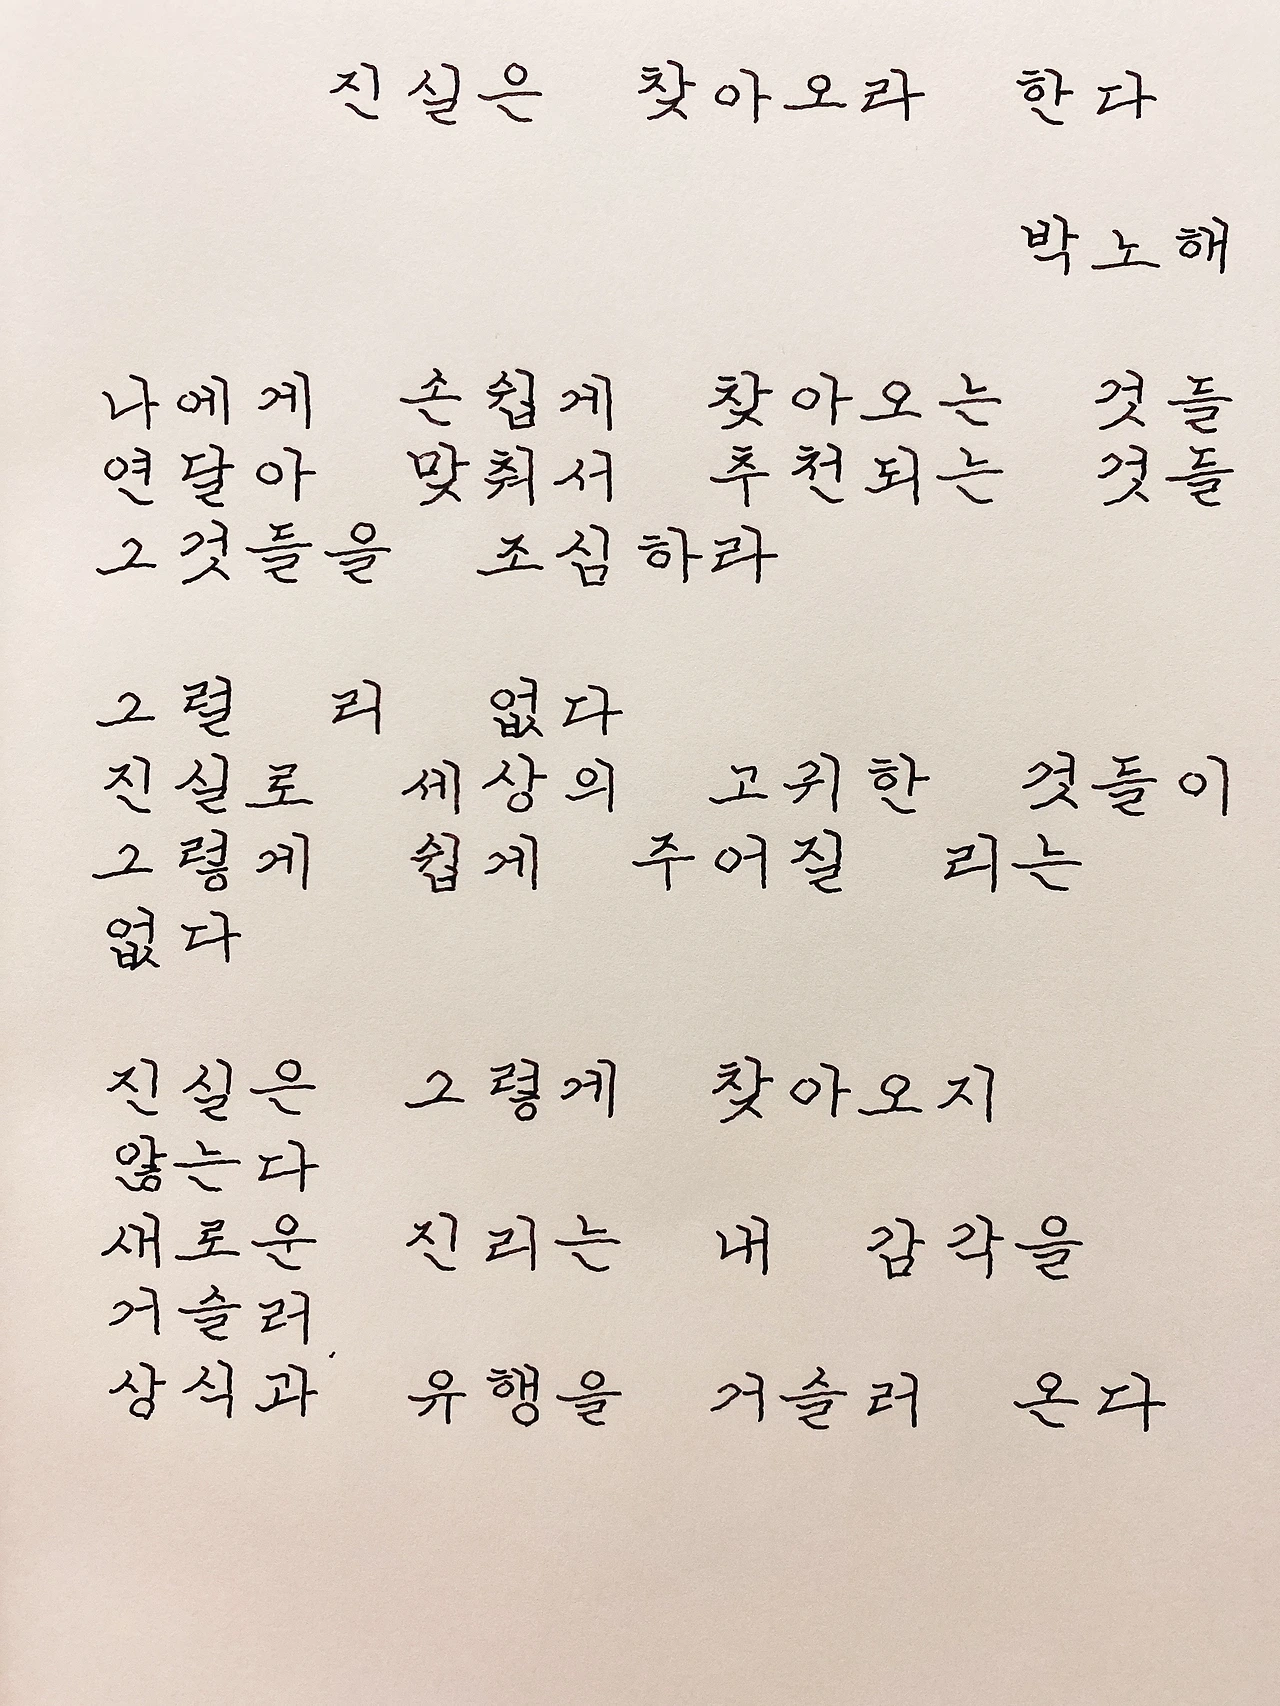 진실은 찾아오라 한다
박노해
나에게 손쉽게 찾아오는 것들
연달아 맞춰서 추천되는 것들
그것들을 조심하라
그럴 리 없다
진실로 세상의 고귀한 것들이
그렇게 쉽게 주어질 리는
없다
진실은 그렇게 찾아오지
않는다
새로운 진리는 내 감각을
거슬러
상식과 유행을 거슬러 온다